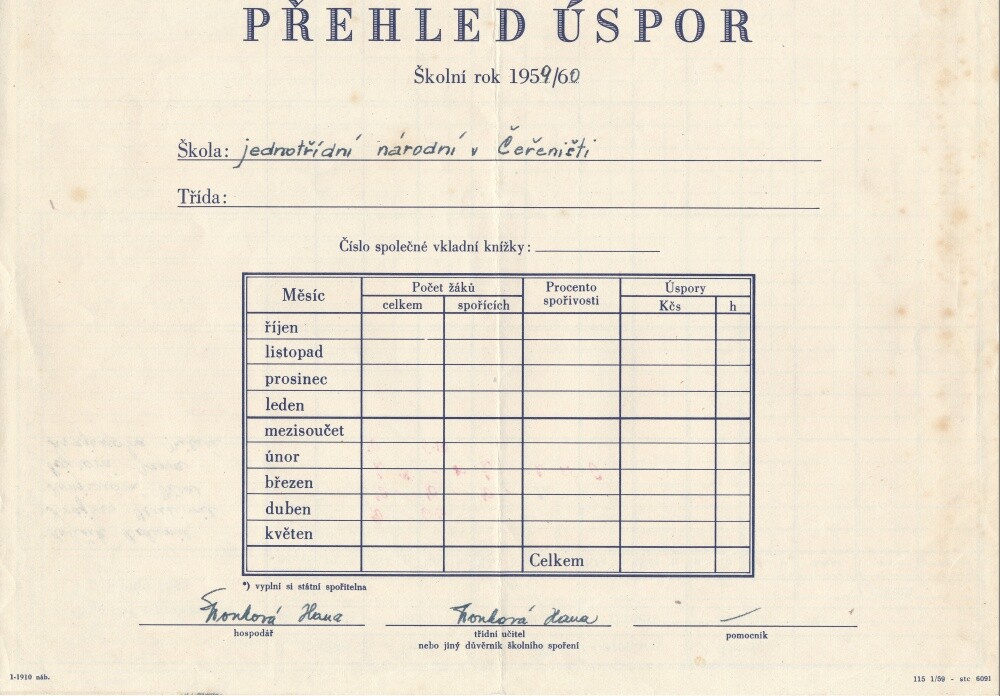 PŘEHLED ÚSPOR
Školní rok 1959/60
Škola: jednotřídní národní v Čeřeništi
Třída:
Číslo společné vkladní knížky:
Měsíc Počet žáků Procento spořivosti Úspory
celkem spořících Kčs h
říjen
listopad
prosinec
leden
mezisoučet
únor
březen
duben
květen
Celkem
*) vyplní si státní spořitelna
Hana Hana
hospodář třídní učitel pomocník
nebo jiný důvěrník školního spoření
1-1910 náb. 115 1/59 - stc 6091